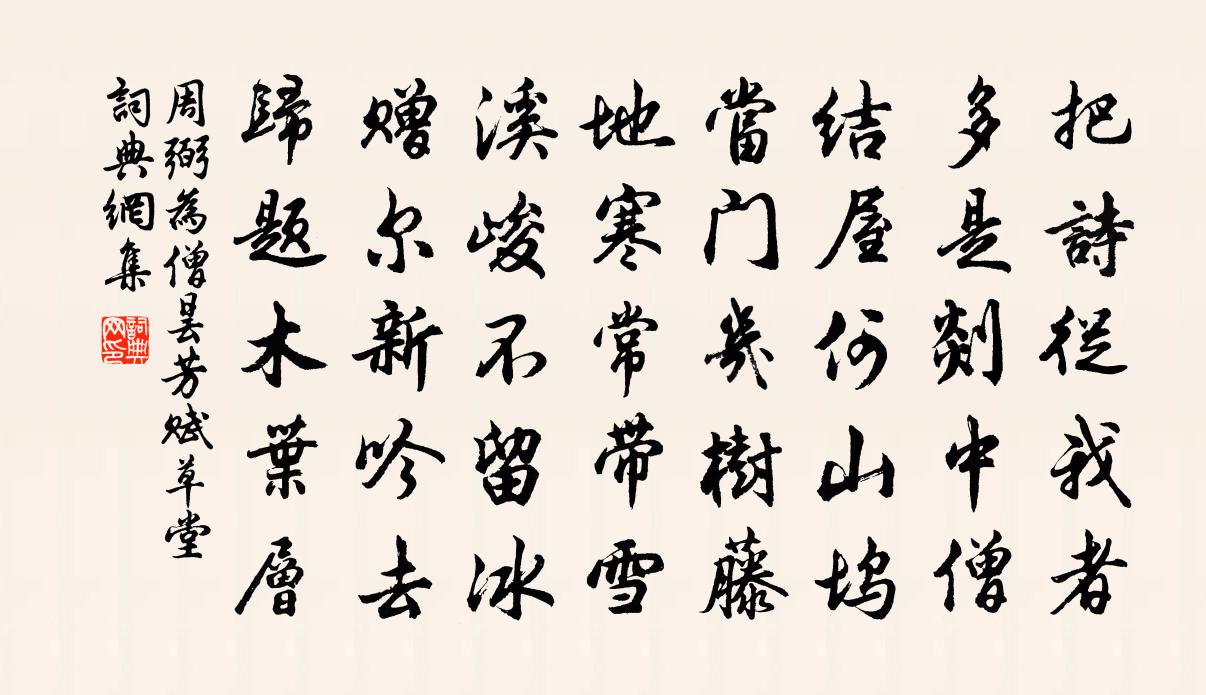 把詩從我者
多是剡中僧
结屋何山坞
當门幾樹藤
地寒常带雪
溪峻不留冰
赠尔新吟去
歸题木葉層
周弼為僧昙芳赋草堂
詞典網集
詞典
网印